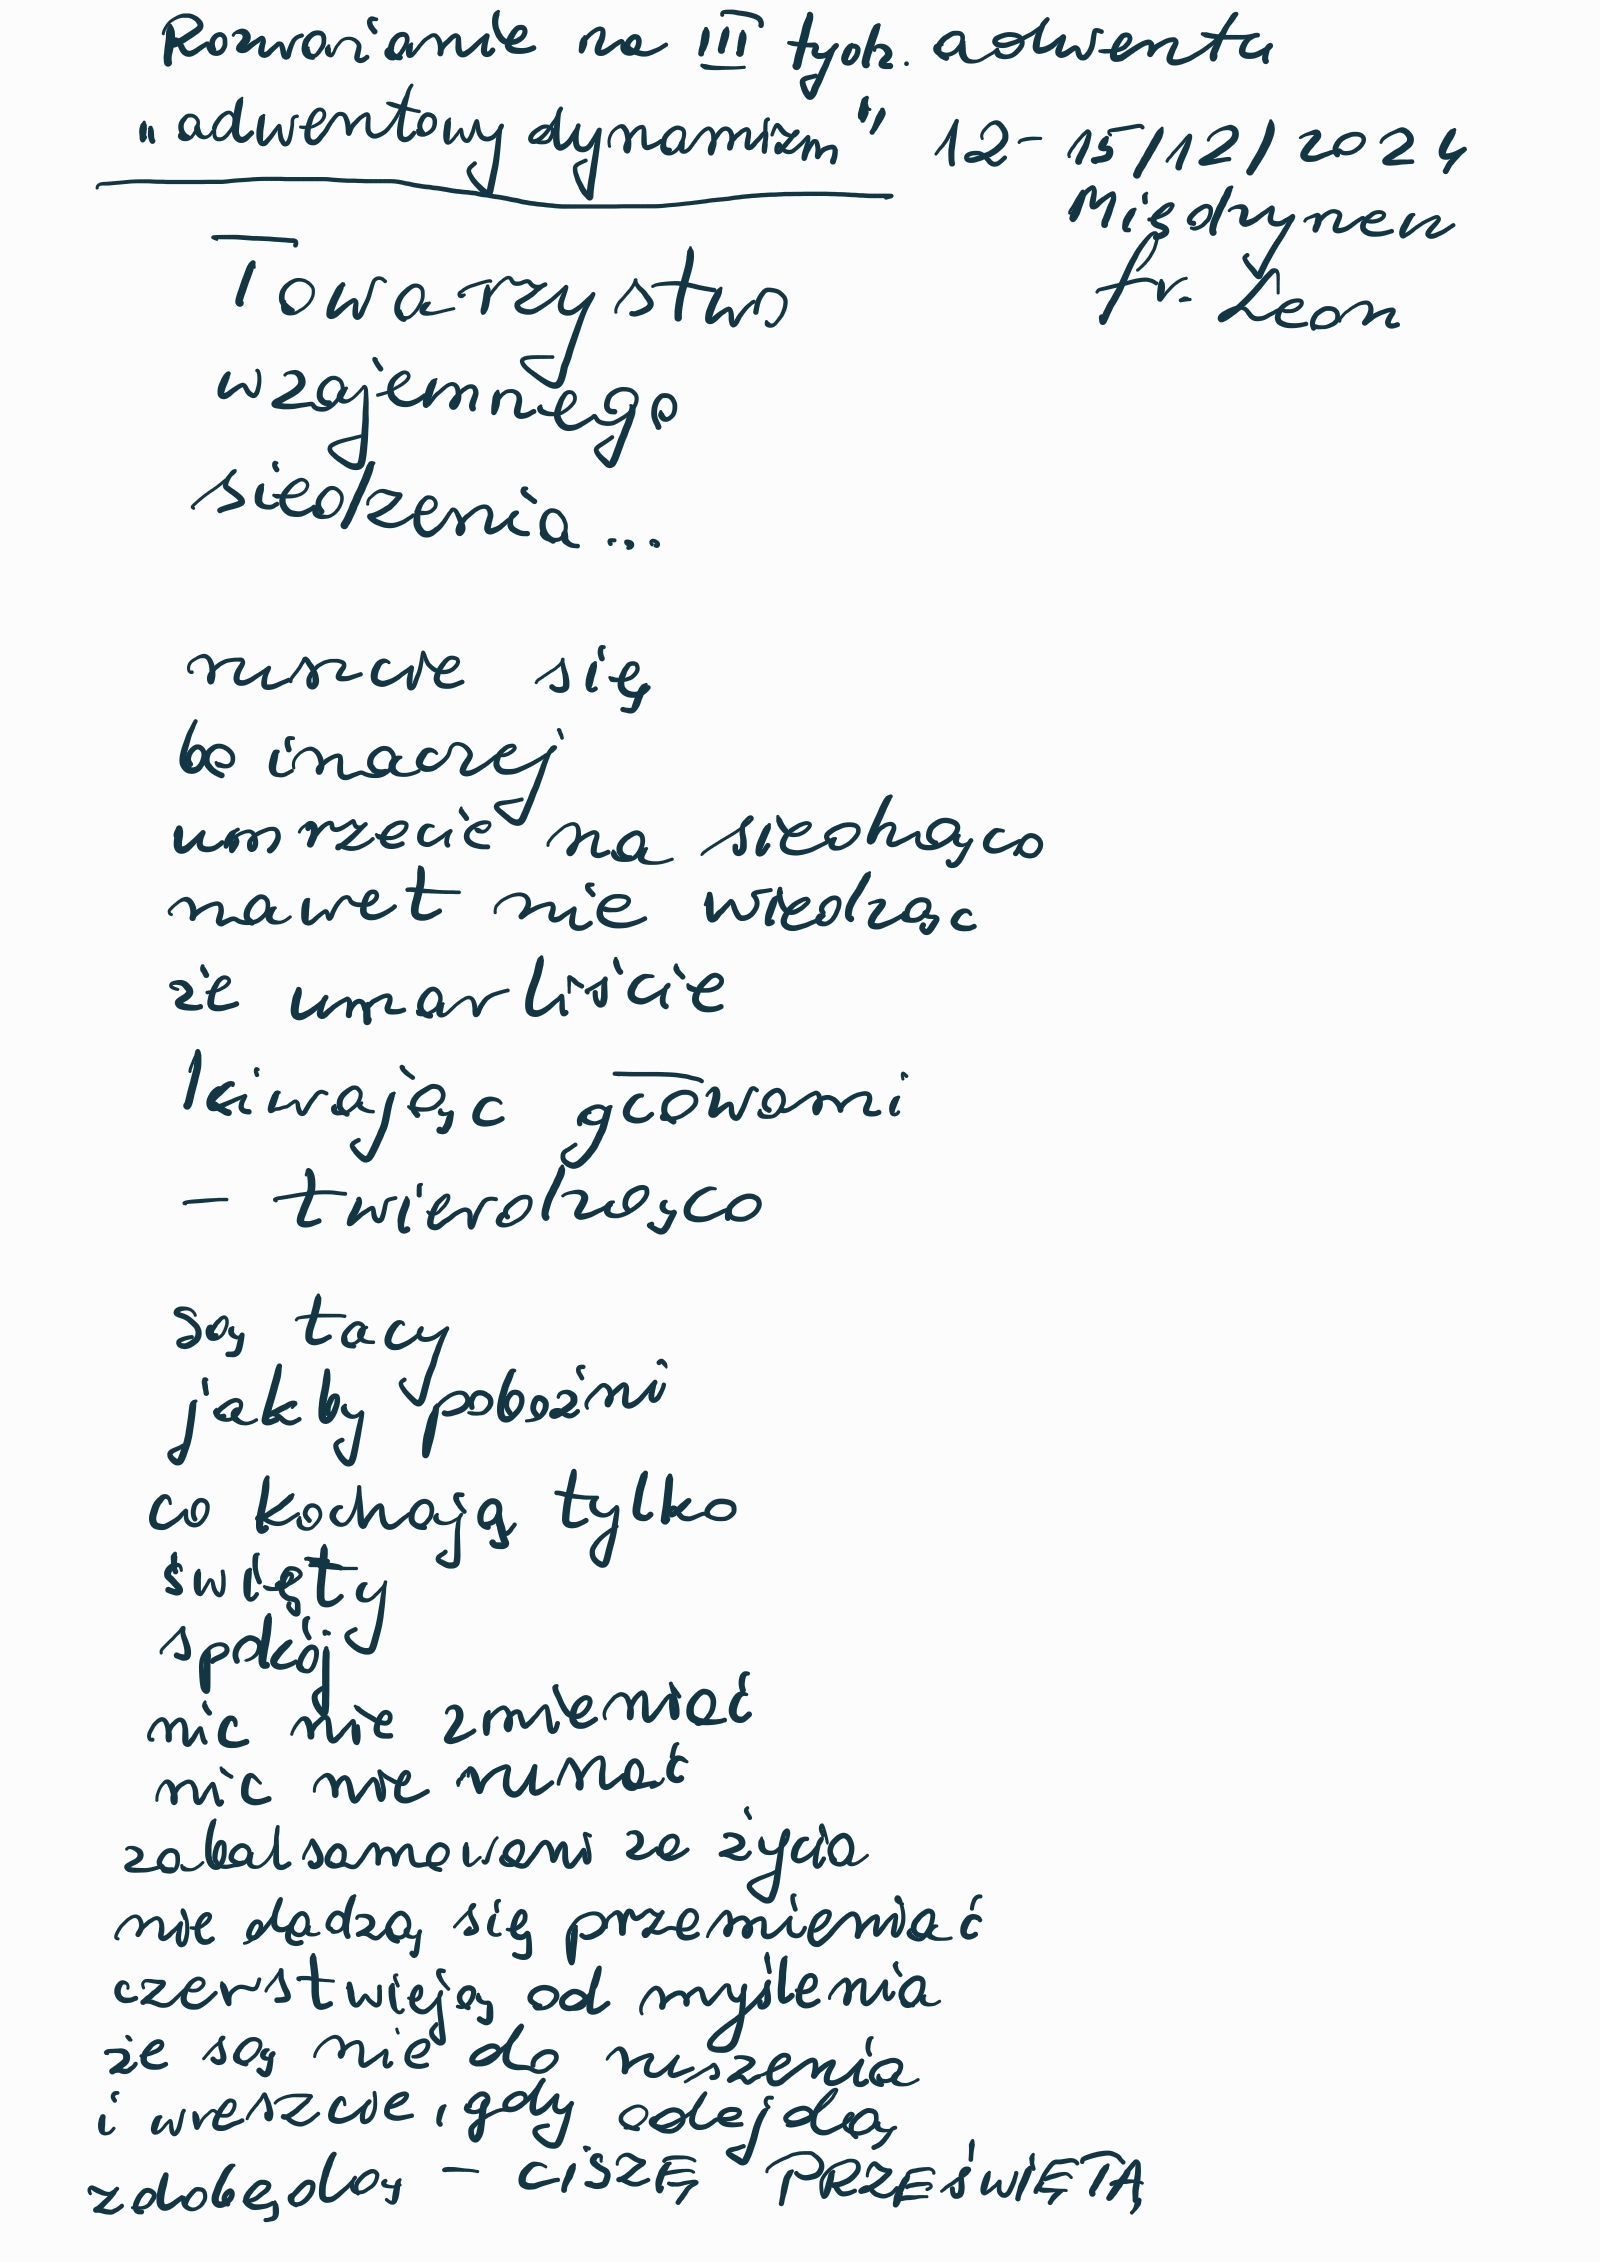 Rozważanie na III tydz. adwentu
"adwentowy dynamizm" 12-15/12/2024
Międzywen
fr. Leon
Towarzystwo
wzajemnego
siedzenia...
ruszcie się
bo inaczej
umrzecie na siedząco
nawet nie wiedząc
że umarliście
kiwając głowami
- twierdząco
są tacy
jakby pobożni
co kochają tylko
święty
spokój
nic nie zmieniać
nic nie ruszać
zabalsamowani za życia
nie dadzą się przemieniać
czerstwieją od myślenia
że są nie do ruszenia
i wreszcie, gdy odejdą
zdobędą - CISZĘ PRZEŚWIĘTĄ